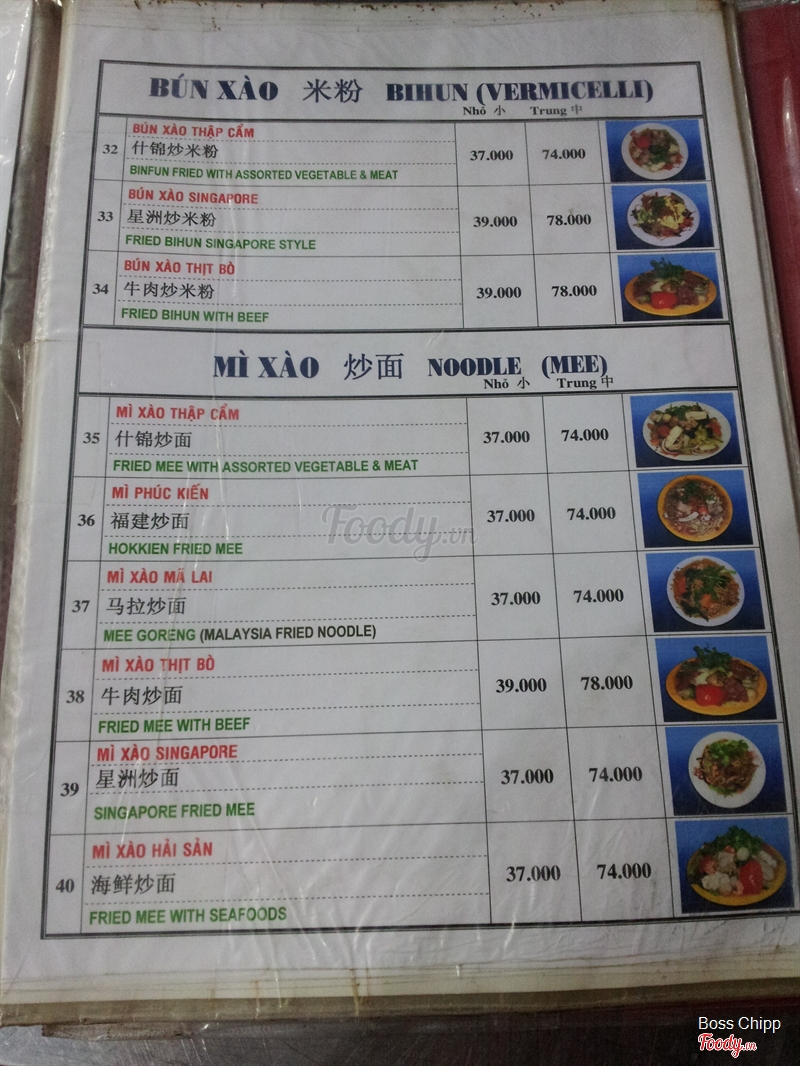 BÚN XÀO 米粉 BIHUN (VERMICELLI)
Nhỏ 小 Trung 中
32 BÚN XÀO THẬP CẨM
什锦炒米粉 37.000 74.000
BINFUN FRIED WITH ASSORTED VEGETABLE & MEAT
33 BÚN XÀO SINGAPORE
星洲炒米粉 39.000 78.000
FRIED BIHUN SINGAPORE STYLE
34 BÚN XÀO THỊT BÒ
牛肉炒米粉 39.000 78.000
FRIED BIHUN WITH BEEF
MÌ XÀO 炒面 NOODLE (MEE)
Nhỏ 小 Trung 中
35 MÌ XÀO THẬP CẨM
什锦炒面 37.000 74.000
FRIED MEE WITH ASSORTED VEGETABLE & MEAT
36 MÌ PHÚC KIẾN
福建炒面 37.000 74.000
HOKKIEN FRIED MEE
37 MÌ XÀO MÃ LAI
马拉炒面 37.000 74.000
MEE GORENG (MALAYSIA FRIED NOODLE)
38 MÌ XÀO THỊT BÒ
牛肉炒面 39.000 78.000
FRIED MEE WITH BEEF
39 MÌ XÀO SINGAPORE
星洲炒面 37.000 74.000
SINGAPORE FRIED MEE
40 MÌ XÀO HẢI SẢN
海鲜炒面 37.000 74.000
FRIED MEE WITH SEAFOODS
Foody.vn
Boss Chipp
Foody.vn